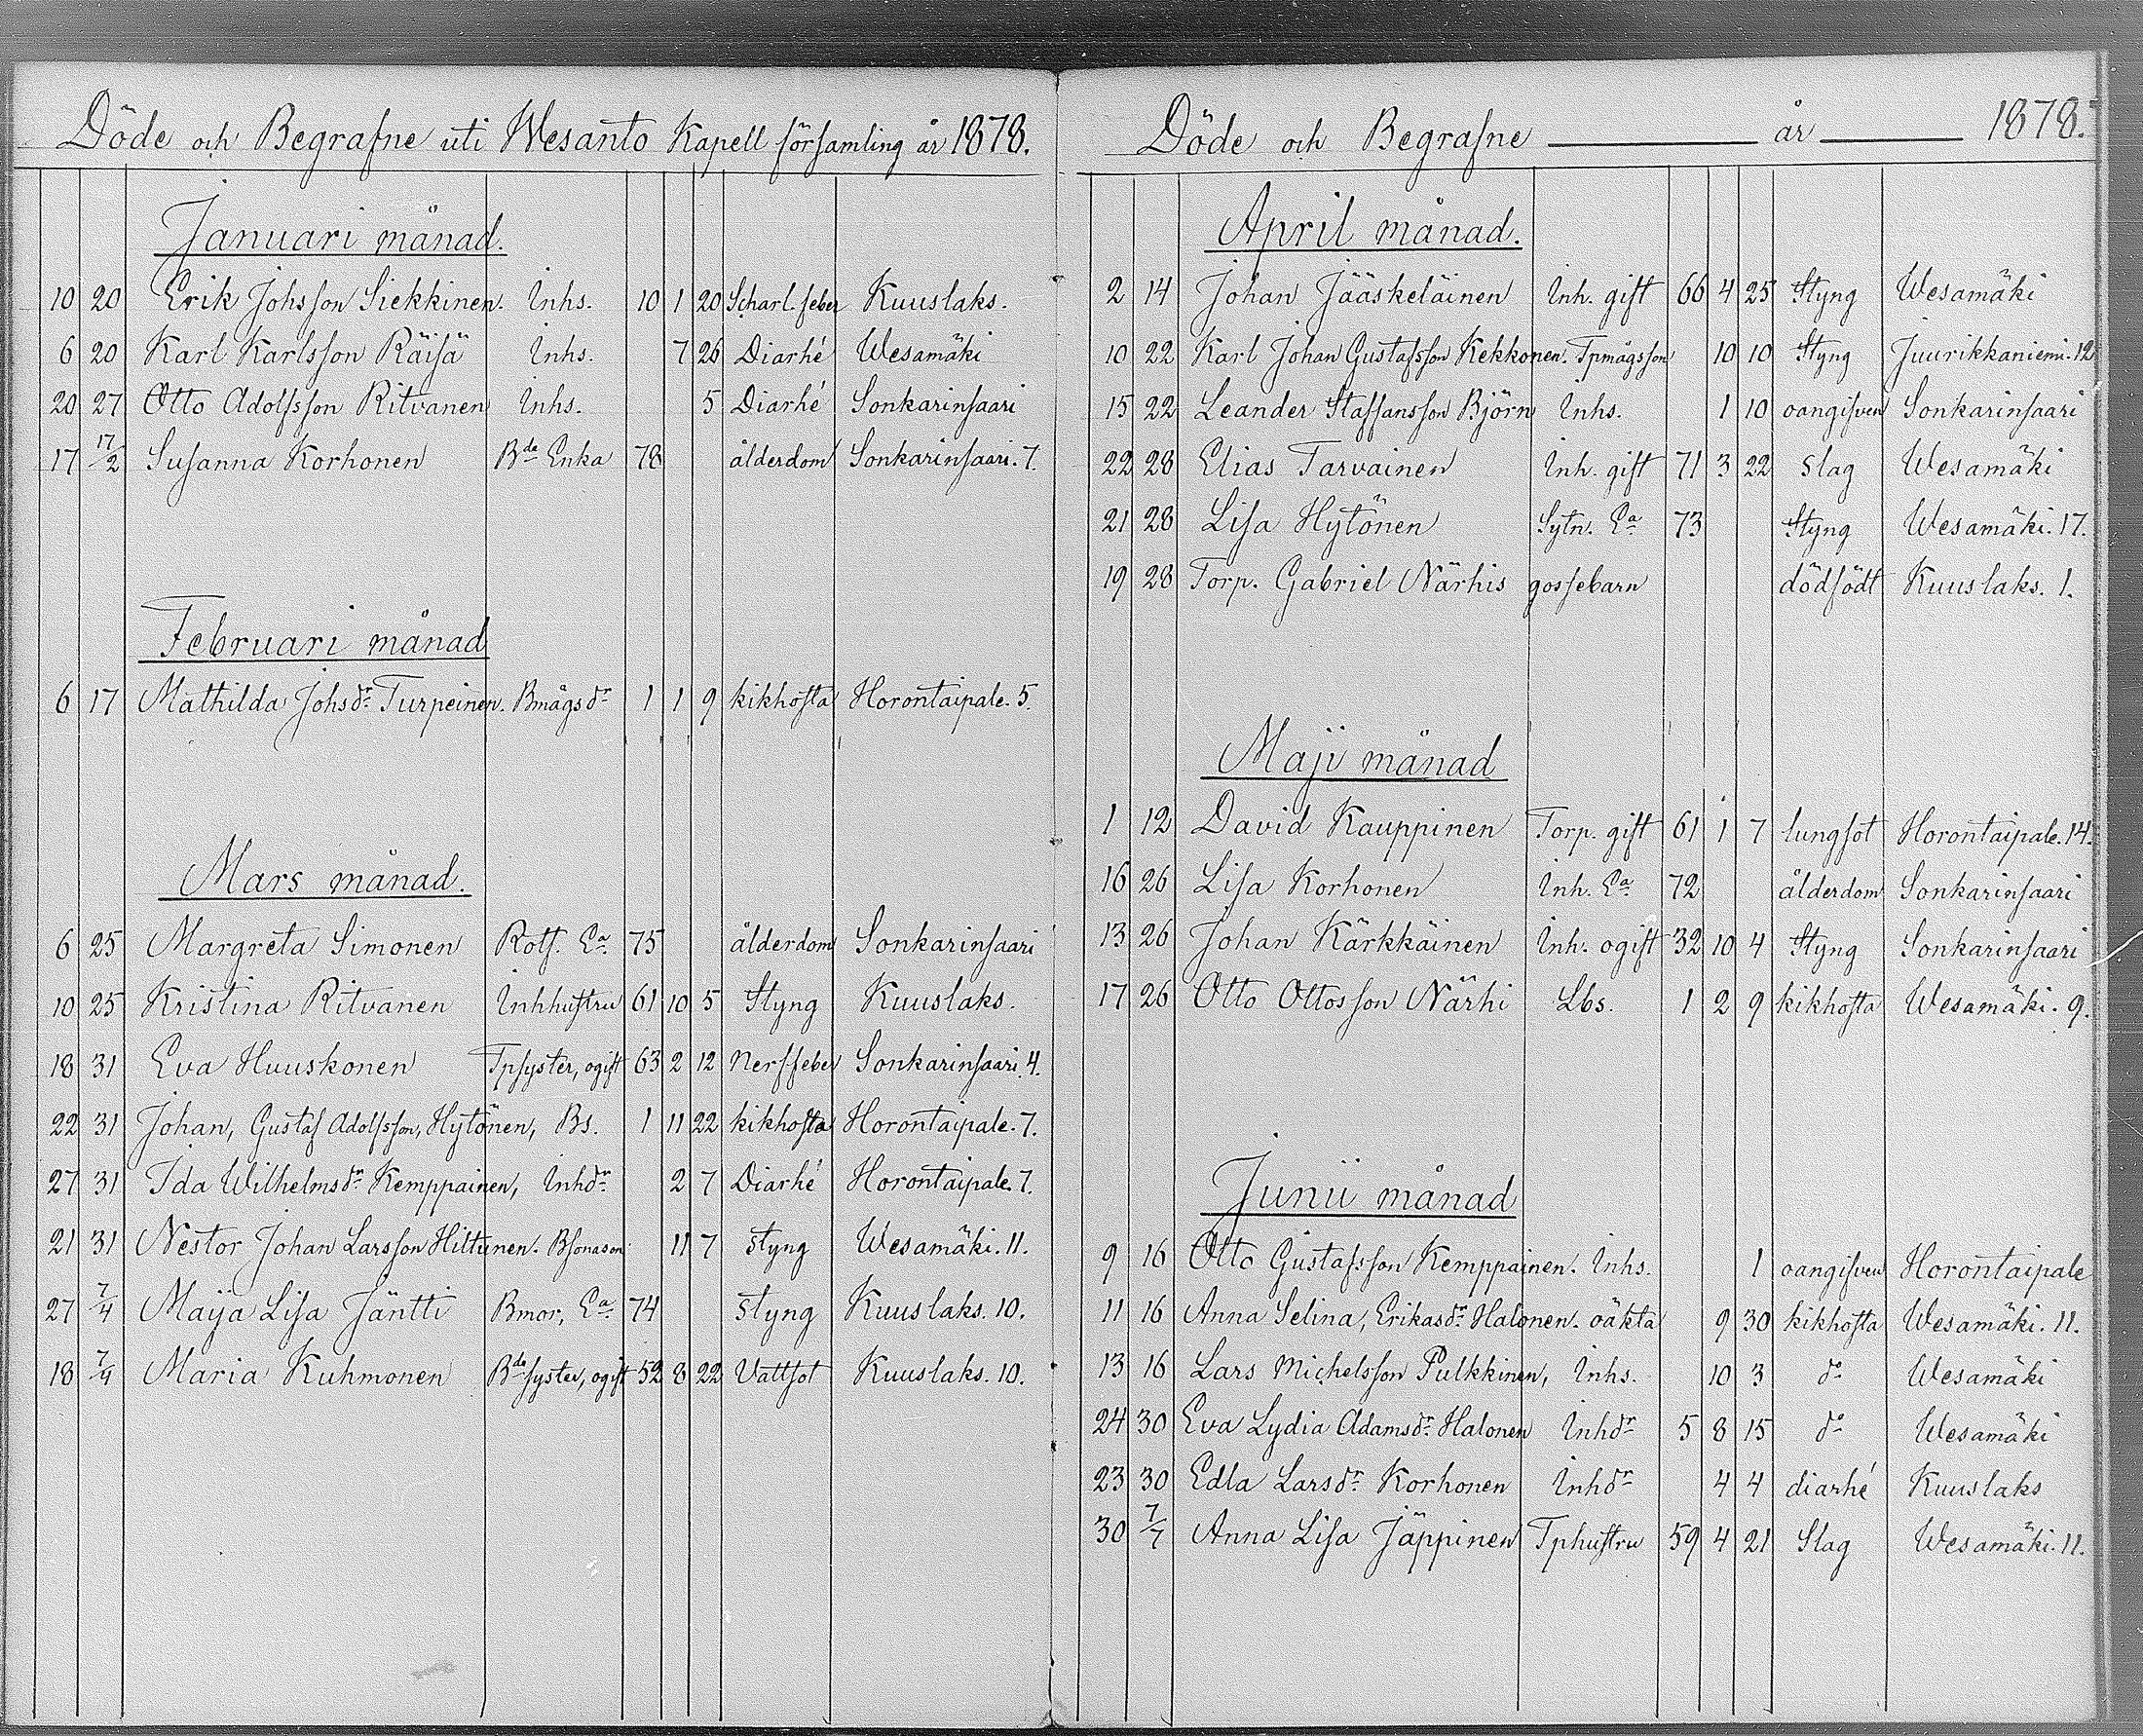 Döde och Begrafne uti Wesanto Kapell församling år 1878.
Januari månad.
10 20 Erik Johsson Siekkinen. Inhs. 10 1 20 Scharl. feber Kuuslaks.
6 20 Karl Karlsson Räisä Inhs. 7 26 Diarhé Wesamäki
20 27 Otto Adolfsson Ritvanen Inhs. 5 Diarhé Sonkarinsaari
17 17/2 Susanna Korhonen Bde Enka 78 ålderdom Sonkarinsaari. 7.
Februari månad
6 17 Mathilda Johsdr Turpeinen. Bmågsdr 1 1 9 kikhosta Horontaipale. 5.
Mars månad.
6 25 Margreta Simonen Rotf. Ea. 75 ålderdom Sonkarinsaari
10 25 Kristina Ritvanen Inhhustru 61 10 5 Styng Kuuslaks.
18 31 Eva Huuskonen Tpsyster, ogift 63 2 12 Nerffeber Sonkarinsaari. 4.
22 31 Johan, Gustaf Adolfsson, Hytönen, Bs. 1 11 22 kikhosta Horontaipale. 7.
27 31 Ida Wilhelmsdr Kemppainen, Inhdr 2 7 Diarhé Horontaipale. 7.
21 31 Nestor Johan Larsson Hiltunen. Bsonason 11 7 Styng Wesamäki. 11.
27 7/4 Maija Lisa Jäntti Bmor, Ea. 74 Styng Kuuslaks. 10.
18 7/4 Maria Kuhmonen Bdesyster, ogift 52 8 22 Vattsot Kuuslaks. 10.
Döde och Begrafne år 1878.
April månad.
2 14 Johan Jääskeläinen Inh. gift 66 4 25 Styng Wesamäki
10 22 Karl Johan Gustafsson Kekkonen. Tpmågsson 10 10 Styng Juurikkaniemi. 12
15 22 Leander Staffansson Björn Inhs. 1 10 oangifven Sonkarinsaari
22 28 Elias Tarvainen Inh. gift 71 3 22 Slag Wesamäki
21 28 Lisa Hytönen Sytn. Ea 73 Styng Wesamäki. 17.
19 28 Torp. Gabriel Närhis gossebarn dödfödt Kuuslaks. 1.
Maji månad
1 12 David Kauppinen Torp. gift 61 1 7 lungsot Horontaipale. 14.
16 26 Lisa Korhonen Inh. Ea. 72 ålderdom Sonkarinsaari
13 26 Johan Kärkkäinen Inh. ogift 32 10 4 Styng Sonkarinsaari
17 26 Otto Ottosson Närhi Lbs. 1 2 9 kikhosta Wesamäki. 9.
Junii månad
9 16 Otto Gustafsson Kemppainen. Inhs. 1 oangifven Horontaipale
11 16 Anna Selina, Erikasdr Halonen. oäkta 9 30 kikhosta Wesamäki. 11.
13 16 Lars Michelsson Pulkkinen, Inhs. 10 3 do Wesamäki
24 30 Eva Lydia Adamsdr Halonen Inhdr 5 8 15 do Wesamäki
23 30 Edla Larsdr Korhonen Inhdr 4 4 diarhé Kuuslaks
30 7/7 Anna Lisa Jäppinen Tphustru 59 4 21 Slag Wesamäki. 11.